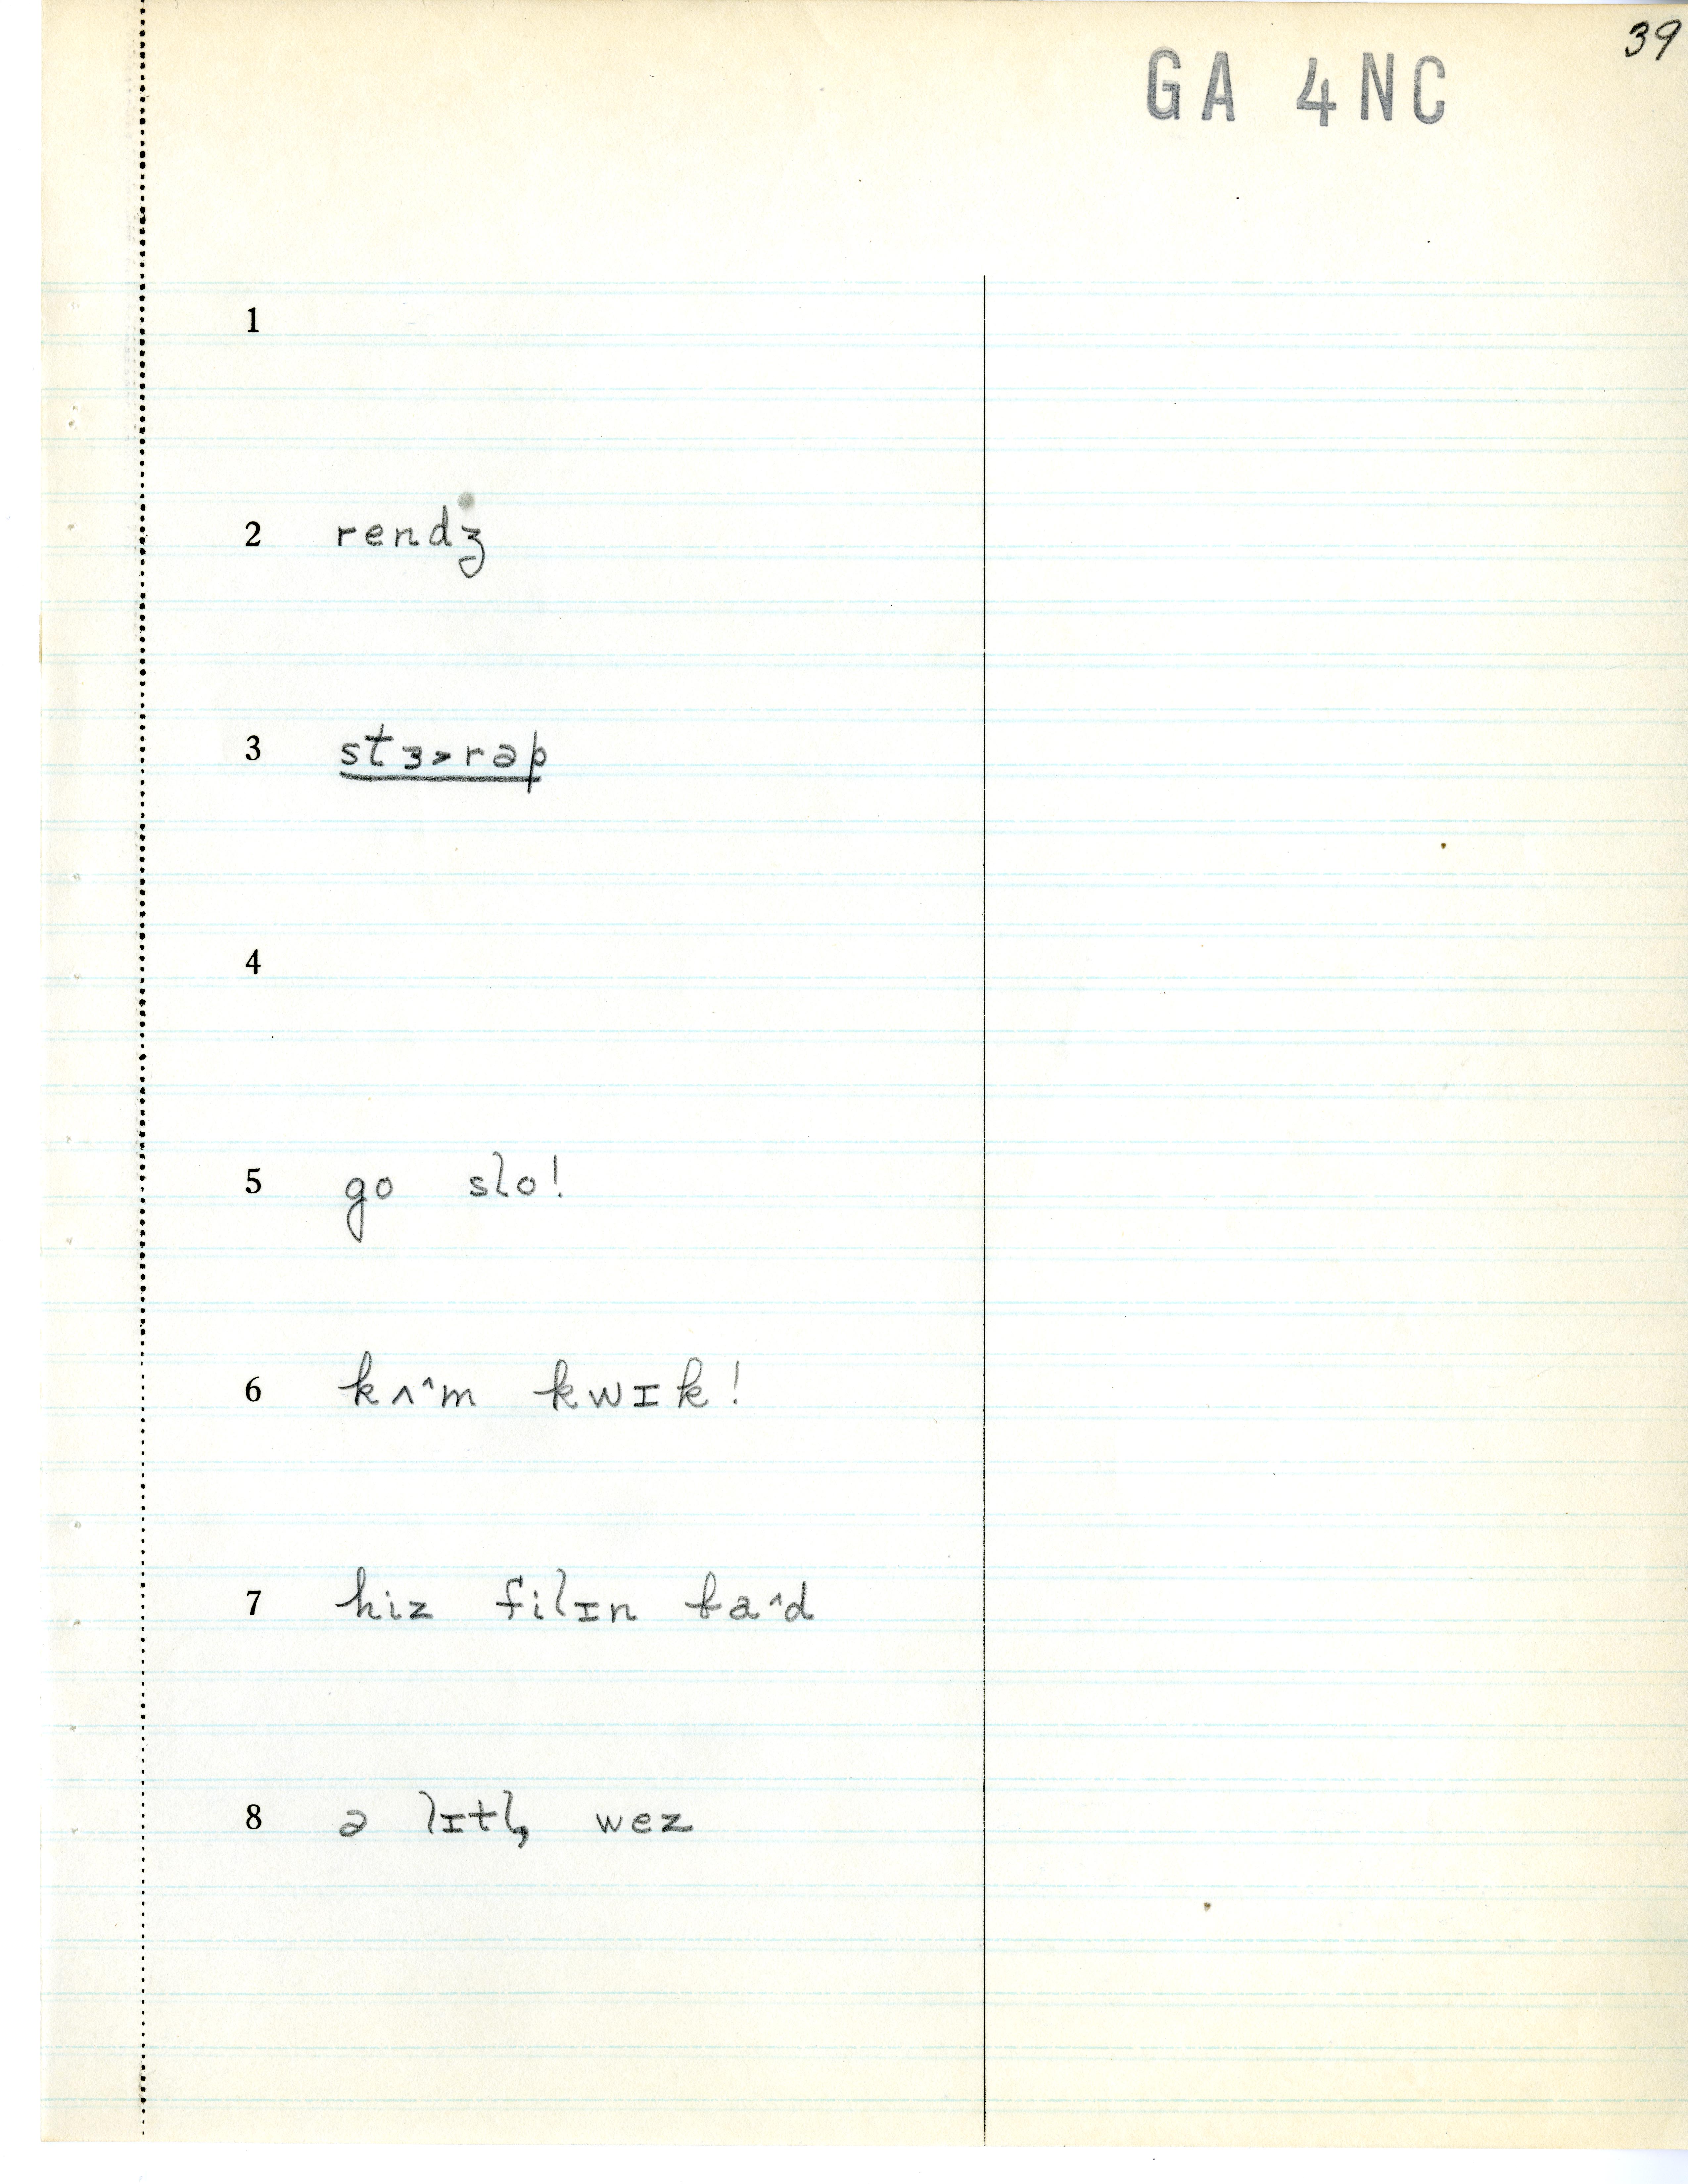 39
GA 4NC
1
2 rendʒ
3 stɜ˃rəp
4
5 go slo!
6 kʌ^m kwɪk!
7 hiz filɪn ba^d
8 ə lɪtl̩ wez